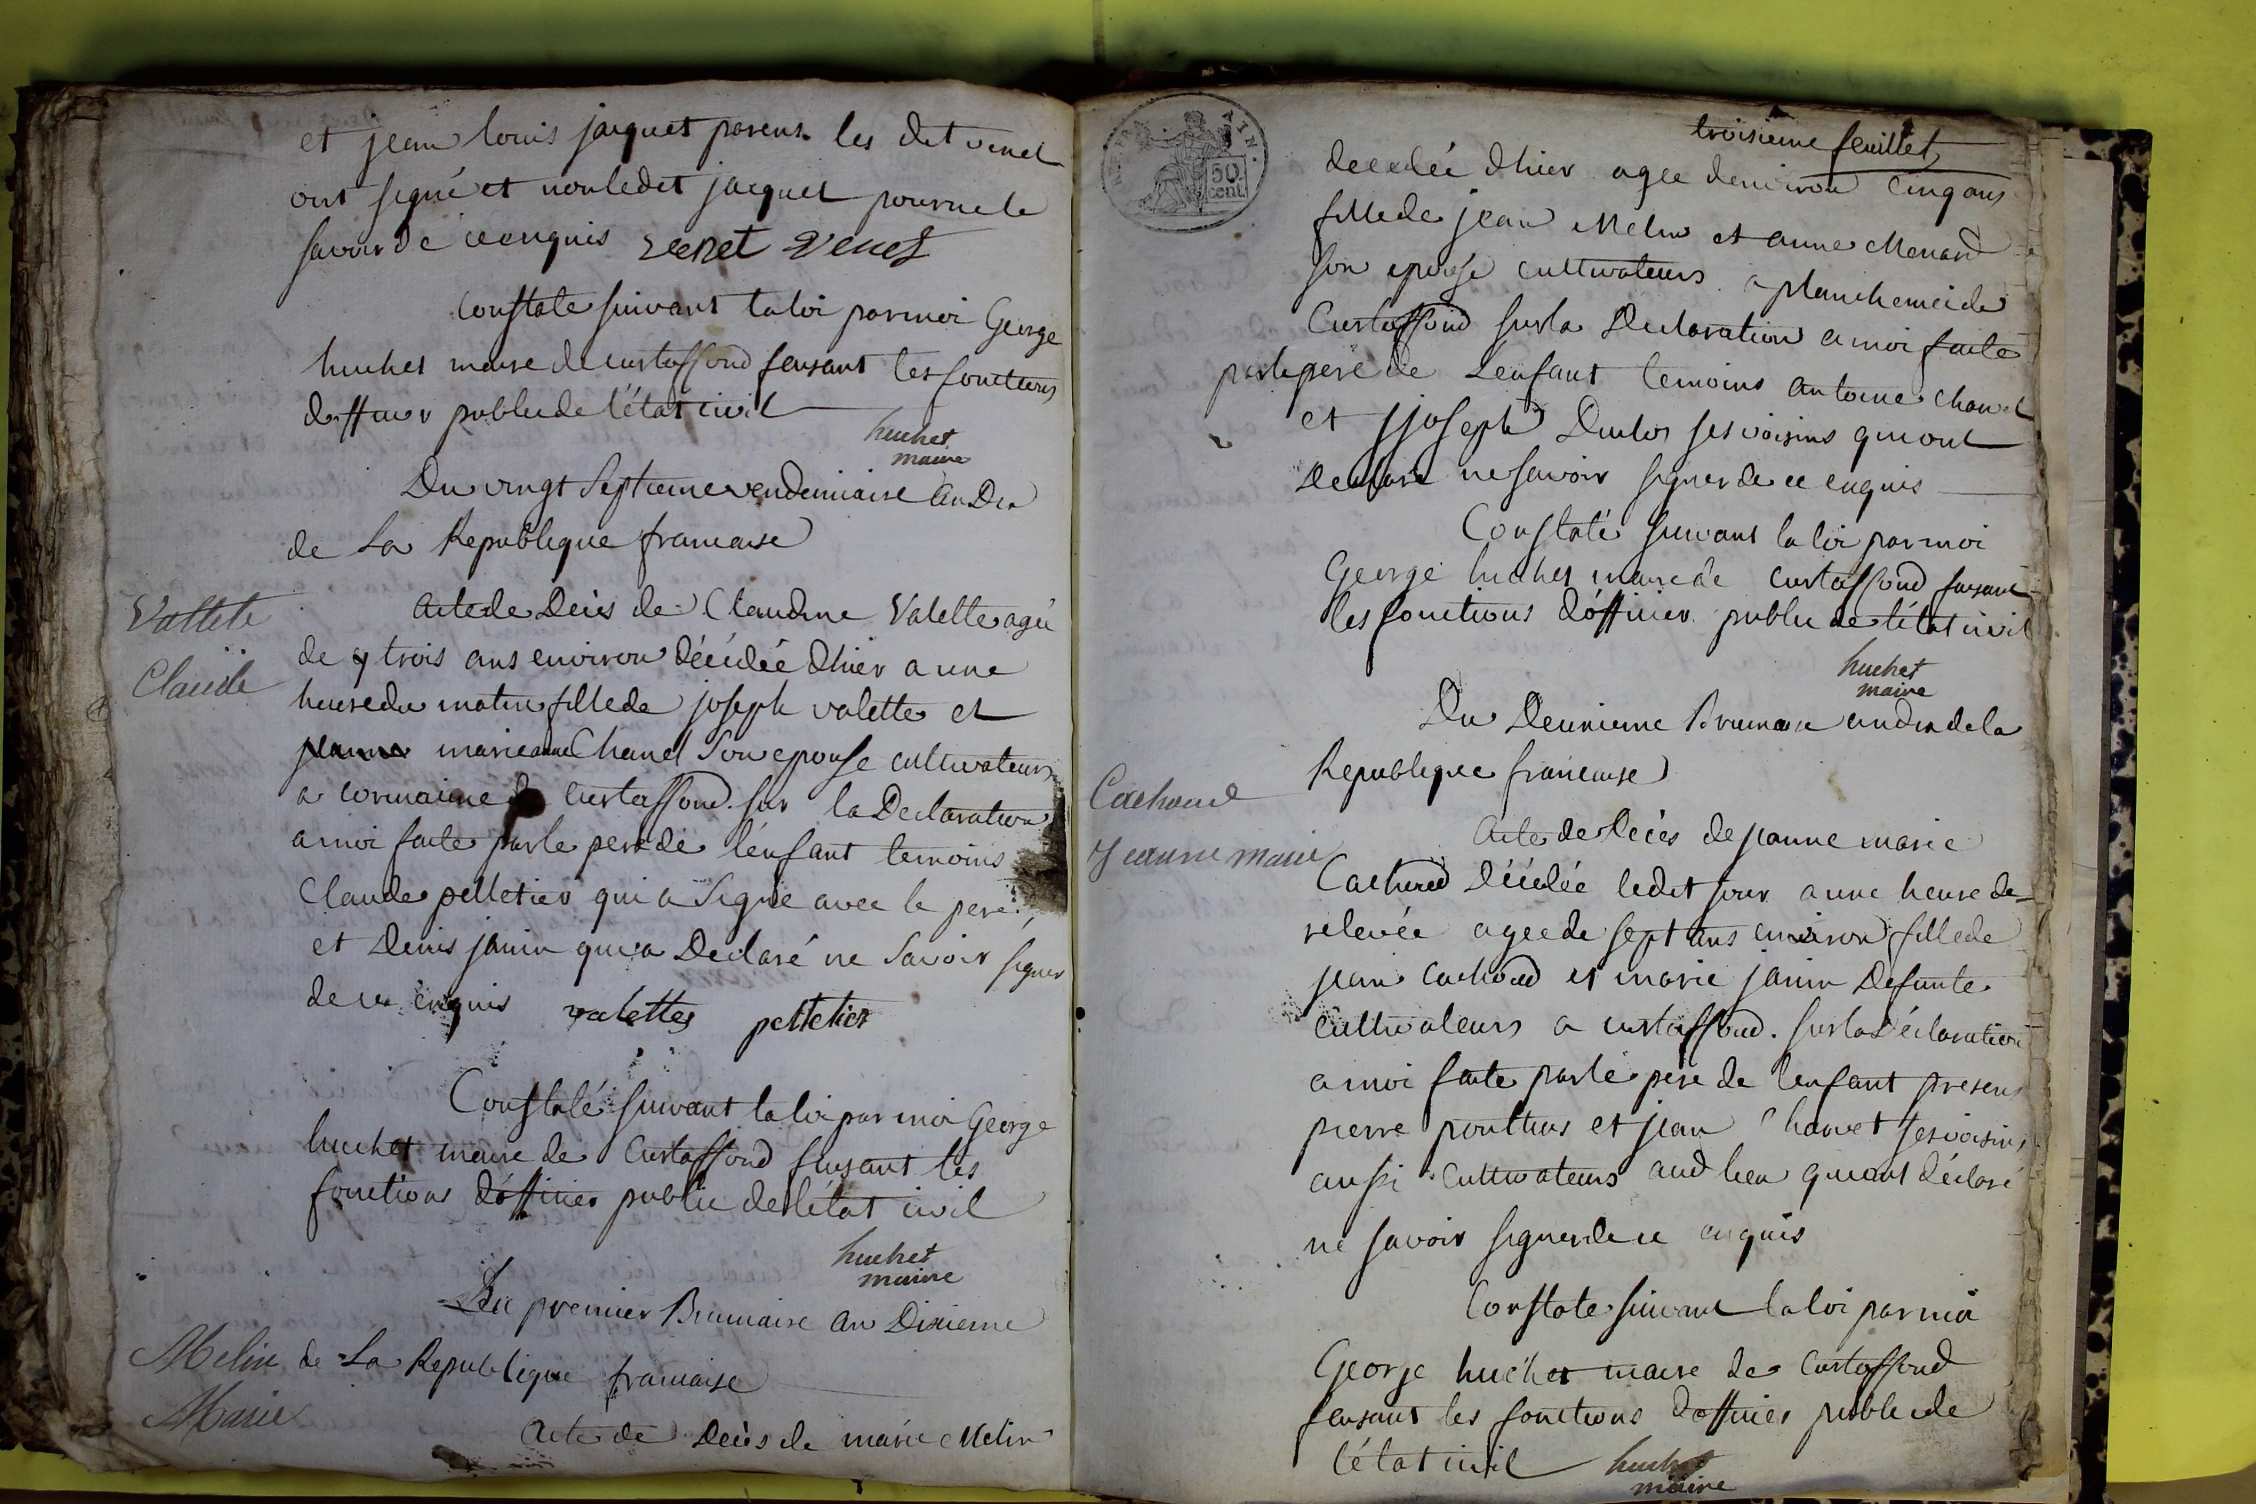 et jean louis jacquet parens les dit venet
ont signé et non ledit jacquet pour ne le
savoir de ce enquis venet venet
Constate suivant la loi par moi George
huchet maire de curtaffond faisant les fonctions
dofficier public de l'état civil
huchet
maire
Du vingt Septieme vendemiaire an Dix
de La Republique francaise
Vallete
Claude
Acte de Deces de Claudine Valette agée
de trois ans environ décédée dhier a une
heure du matin fille de joseph valette et
marie anne Chanel Son epouse cultivateurs
a cormaine Curtaffond sur la Declaration
a moi faite par le pere de l'enfant temoins
Claude pelletier qui a Signé avec le pere
et Denis janin qui a Declaré ne Savoir signer
de ce enquis valettes pelletier
Constaté suivant la loi par moi George
huchet maire de Curtaffond faisant les
fonctions d'officier public de l'état civil
huchet
maire
Du premier Brumaire an Dixieme
Melin
Marie
de La Republique francaise
Acte de Decès de marie Melin
50
cent.
troisieme feuillet
decedée dhier agee denviron cinq ans
fille de jean Melin et anne Menard
son epouse cultivateurs a de
Curtaffond sur la Declaration a moi faite
par le pere de L'enfant temoins antoine
et joseph Duclos ses voisins qui ont
Declaré ne savoir signer de ce enquis
Constaté suivant la loi par moi
George huchet maire de curtaffond faisant
les fonctions d'officier public de l'état civil
huchet
maire
Du Deuxieme Brumaire an dix de la
Republique francaise
Cachoud
Jeanne Marie
Acte de decès de jeanne marie
Cachoud Décédée ledit jour a une heure de
relevée agee de sept ans environ fille de
jean cachoud et marie janin Defunte
cultivateurs a curtaffond. sur la Déclaration
a moi faite par le pere de l'enfant presens
pierre et jean ses voisins
aussi cultivateurs aud lieu qui ont déclaré
ne savoir signer de ce enquis
Constate suivant la loi par moi
George huchet maire de Curtaffond
faisant les fonctions dofficier public de
l'état civil
huchet
maire